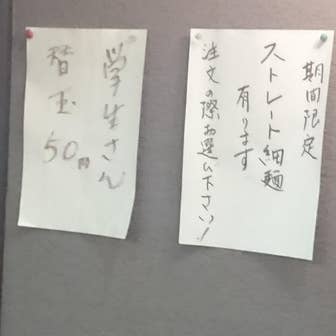 期間限定
ストレート細麺
有ります
注文の際お選ん下さい!
學生さん
替玉
50円